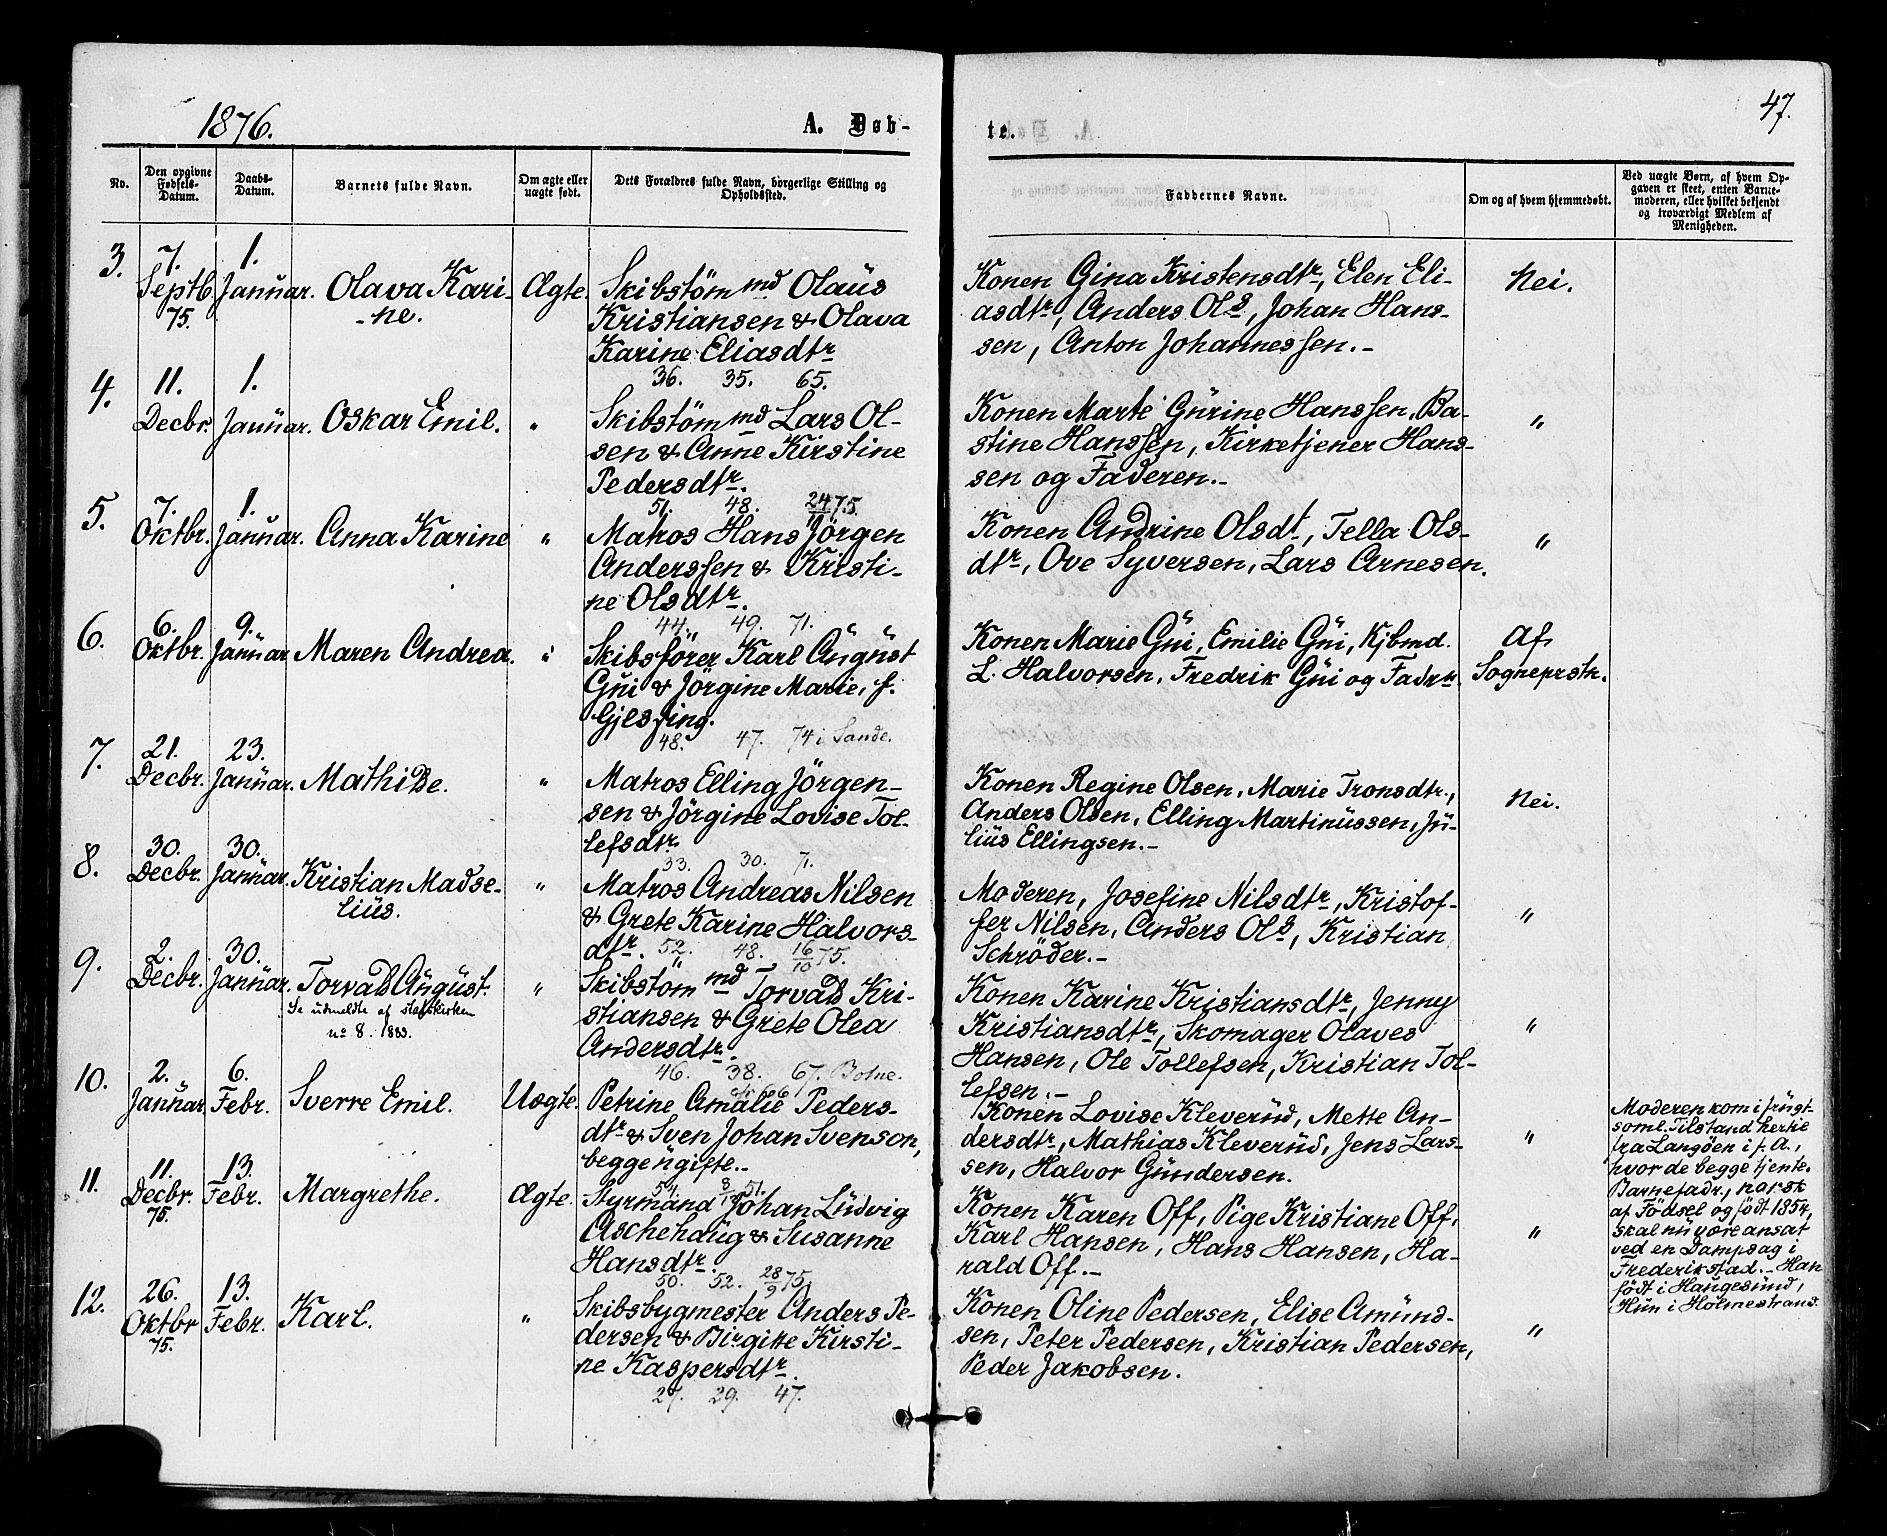 1876.
A. Døb-
te.
47.
No.
Den opgivne Fødsels-Datum.
Daabs-Datum.
Barnets fulde Navn.
Om ægte eller uægte født.
Dets Forældres fulde Navn, borgerlige Stilling og Opholdssted.
Faddernes Navne.
Om og af hvem hjemmedøbt.
Ved uægte Børn, af hvem Op-
gaven er skeet, enten Barne-
moderen, eller hvilket bekjendt
og troværdigt Medlem af
Menigheden.
3.
7. Septb. 75.
1. Januar.
Olava Kari-
-ne.
Ægte.
Skibstømmd Olaus
Kristiansen & Olava
Karine Eliasdtr
36. 35. 65.
Konen Gina Kristensdtr, Elen Eli-
asdtr, Anders Ols, Johan Hans-
sen, Anton Johannessen.-
Nei.
4.
11. Decbr.
1. Januar.
Oskar Emil.
"
Skibstømmd Lars Ol-
sen & Anne Kirstine
Pedersdtr.
51. 48. 24/11 75.
Konen Marte Gurine Hanssen, Ba-
stine Hanssen, Kirketjener Hans-
sen og Faderen.-
"
5.
7. Oktbr.
1. Januar.
Anna Karine
"
Matros Hans Jörgen
Anderssen & Kristi-
ne Olsdtr.
44. 49. 71.
Konen Andrine Olsdt, Tella Ols-
dtr, Ove Syversen, Lars Arnesen.
"
6.
6. Oktbr.
9. Januar
Maren Andrea.
"
Skibsförer Karl August
Gui & Jörgine Marie, f.
Gjessing.
48. 47. 74 i Sande.
Konen Marie Gui, Emilie Gui, Kjbmd.
L. Halvorsen, Fredrik Gui og Fadrn.
Af
Sogneprstn.
7.
21. Decbr.
23. Januar.
Mathilde.
"
Matros Elling Jörgen-
sen & Jörgine Lovise Tol-
lefsdtr.
33. 30. 71.
Konen Regine Olsen, Marie Tronsdtr.,
Anders Olsen, Elling Martinussen, Ju-
lius Ellingsen.-
Nei.
8.
30. Decbr.
30. Januar.
Kristian Madse-
lius.
"
Matros Andreas Nilsen
& Grete Karine Halvors-
dtr. 52. 48. 16/10 75.
Moderen, Josefine Nilsdtr, Kristof-
fer Nilsen, Anders Ols, Kristian
Schrøder.-
"
9.
2. Decbr.
30. Januar.
Torvald August.
Se udmeldte af statskirken
no 8. 1883.
"
Skibstömmd Torvald Kri-
stiansen & Grete Olea
Andersdtr.
46. 38. 67. Botne.
Konen Karine Kristiansdtr, Jenny
Kristiansdtr, Skomager Olaves
Hansen, Ole Tollefsen, Kristian Tol-
lefsen.-
"
10.
2. Januar
6. Febr.
Sverre Emil.
Uægte.
Petrine Amalie Peders-
dtr & Sven Johan Svenson,
begge ugifte.-
54. 8/1 51.
Konen Lovise Kleverud, Mette An-
dersdtr, Mathias Kleverud, Jens Lars-
sen, Halvor Gundersen.
"
Moderen kom i frugt-
soml. Tilstand hertil
fra Langöen i f. A.,
hvor de begge tjente.
Barnefadr., norsk
af Födsel og født 1854,
skal nu være ansat
ved en Dampsag i
Frederikstad.- Han
født i Haugesund,
Hun i Holmestrand.
11.
11. Decbr. 75.
13. Febr.
Margrethe.
Ægte.
Styrmand Johan Ludvig
Aschehaug & Susanne
Hansdtr.
50. 52. 28/9 75.
Konen Karen Off, Pige Kristiane Off,
Karl Hansen, Hans Hansen, Ha-
rald Off.-
"
12.
26. Oktbr 75.
13. Febr.
Karl.
"
Skibsbygmester Anders Pe-
dersen & Birgitte Kirsti-
ne Kaspersdtr.
27. 29. 47.
Konen Oline Pedersen, Elise Amund-
sen, Peter Pedersen, Kristian Pedersen,
Peder Jakobsen.
"